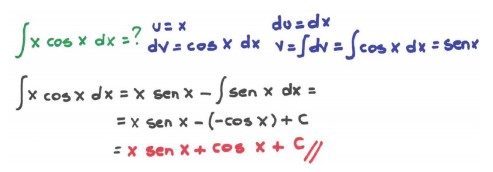 ∫x cos x dx = ? u = x du = dx
dv = cos x dx v = ∫dv = ∫cos x dx = sen x
∫x cos x dx = x sen x - ∫sen x dx =
= x sen x - (-cos x) + C
= x sen x + cos x + C //